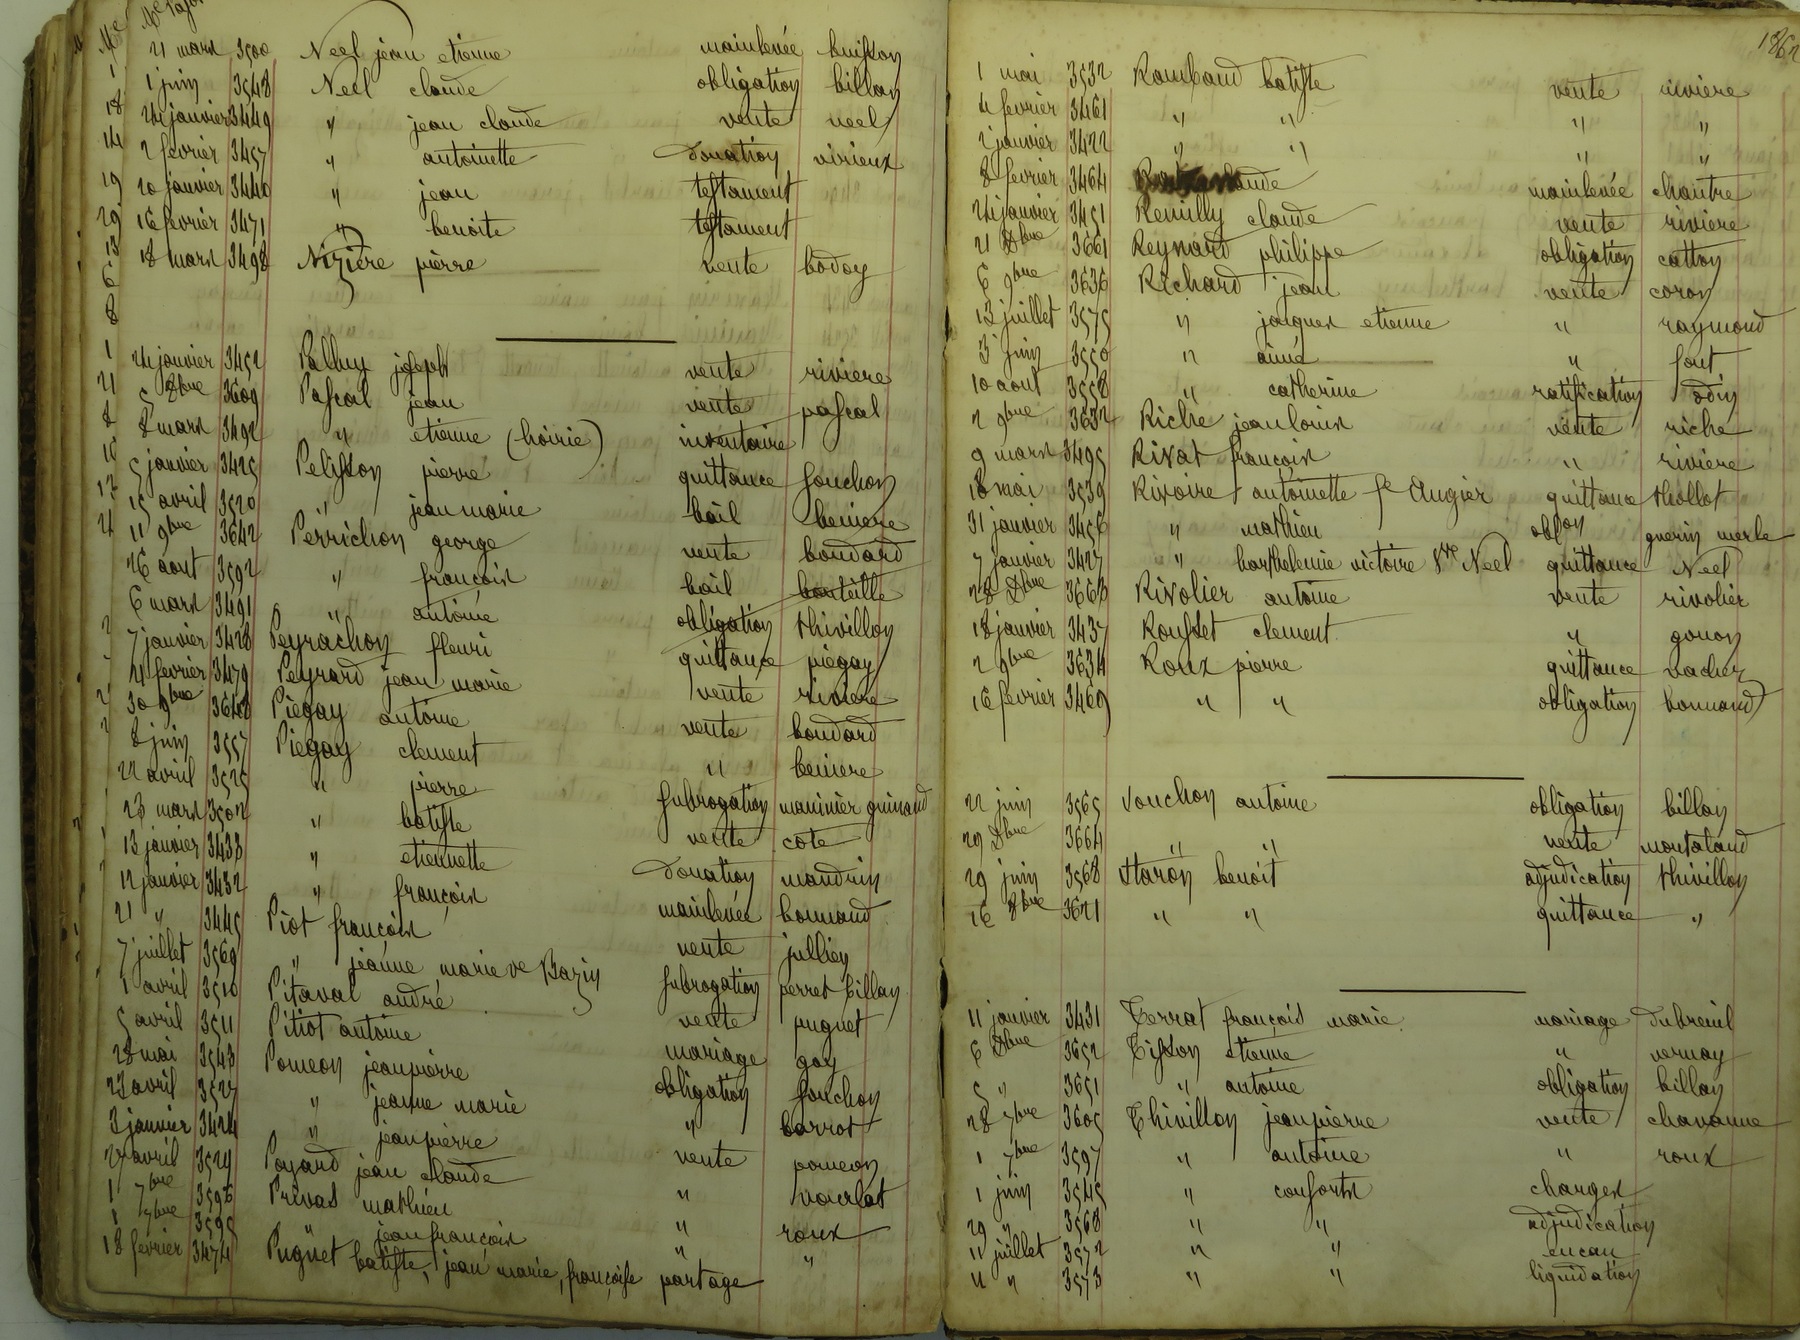 21 mars 3500 Neel jean etienne mainlevée buisson
1 juin 3548 Neel claude obligation billon
24 janvier 3449 " jean claude vente neel
2 fevrier 3457 " antoinette Donation virieux
20 janvier 3440 " jean testament
16 fevrier 3471 " benoite testament
18 mars 3498 Nizière pierre vente bodoy
24 janvier 3452 Palluy joseph vente riviere
5 8bre 3609 Pascal jean vente pascal
8 mars 3492 " etienne (hoirie) inventaire
5 janvier 3425 Pelisson pierre quittance souchon
15 avril 3520 " jean marie bail beniere
11 9bre 3642 Perrichon george vente boudard
26 aout 3592 " françois bail bouteille
6 mars 3491 " antoine obligation thivillon
7 janvier 3428 Peyrachon fleuri quittance piegay
4 fevrier 3479 Peyrard jean marie vente riviere
30 9bre 3648 Piegay antoine vente boudard
8 juin 3557 Piegay clement " beniere
22 avril 3525 " pierre subrogation maninier guinand
23 mars 3502 " batiste vente cote
13 janvier 3433 " etiennette Donation mandrin
12 janvier 3432 " françois mainlevée bonnand
21 " 3445 Piot françois vente jullien
7 juillet 3569 " jeanne marie ve Bazin subrogation perret billon
1 avril 3510 Pitaval andré vente puguet
5 avril 3511 Pitiot antoine mariage gay
28 mai 3543 Pomeon jean pierre obligation souchon
23 avril 3527 " jeanne marie " barrot
3 janvier 3424 " jean pierre vente pomeon
27 avril 3529 Poyard jean claude " vourlat
1 7bre 3596 Privas mathieu " roux
1 7bre 3595 " jean françois " "
18 fevrier 3474 Puguet batiste, jean marie, françoise partage
1862
1 mai 3532 Rambaud batiste vente riviere
4 fevrier 3461 " " " "
2 janvier 3422 " " " "
8 fevrier 3464 claude mainlevée chantre
24 janvier 3451 Remilly claude vente riviere
21 Dbre 3661 Reynard philippe obligation catton
6 9bre 3636 Richard jean vente coron
13 juillet 3575 " jacques etienne " raymond
3 juin 3550 " aimé " font
10 aout 3558 " catherine ratification odin
2 9bre 3632 Riche jean louis vente riche
9 mars 3495 Rivat françois " riviere
18 mai 3539 Rivoire antoinette fe Augier quittance thollot
31 janvier 3456 " mathieu oblon guerin merle
7 janvier 3427 " barthelemie victoire Vve Neel quittance Neel
28 Dbre 3663 Rivolier antoine vente rivolier
18 janvier 3437 Rousset clement " gonon
2 9bre 3634 Roux pierre quittance vacher
16 fevrier 3469 " " obligation bonnand
22 juin 3565 Souchon antoine obligation billon
29 Dbre 3664 " " vente montaland
29 juin 3568 Staron benoit adjudication thivillon
16 8bre 3621 " " quittance "
11 janvier 3431 Terrat françois marie mariage Dubreuil
6 Dbre 3652 Tisson etienne " vernay
5 " 3651 " antoine obligation billon
28 7bre 3605 Thivillon jean pierre vente chavanne
1 7bre 3597 " antoine " roux
1 juin 3545 " consorts charges
29 " 3568 " " adjudication
11 juillet 3572 " " encan
11 " 3573 " " liquidation